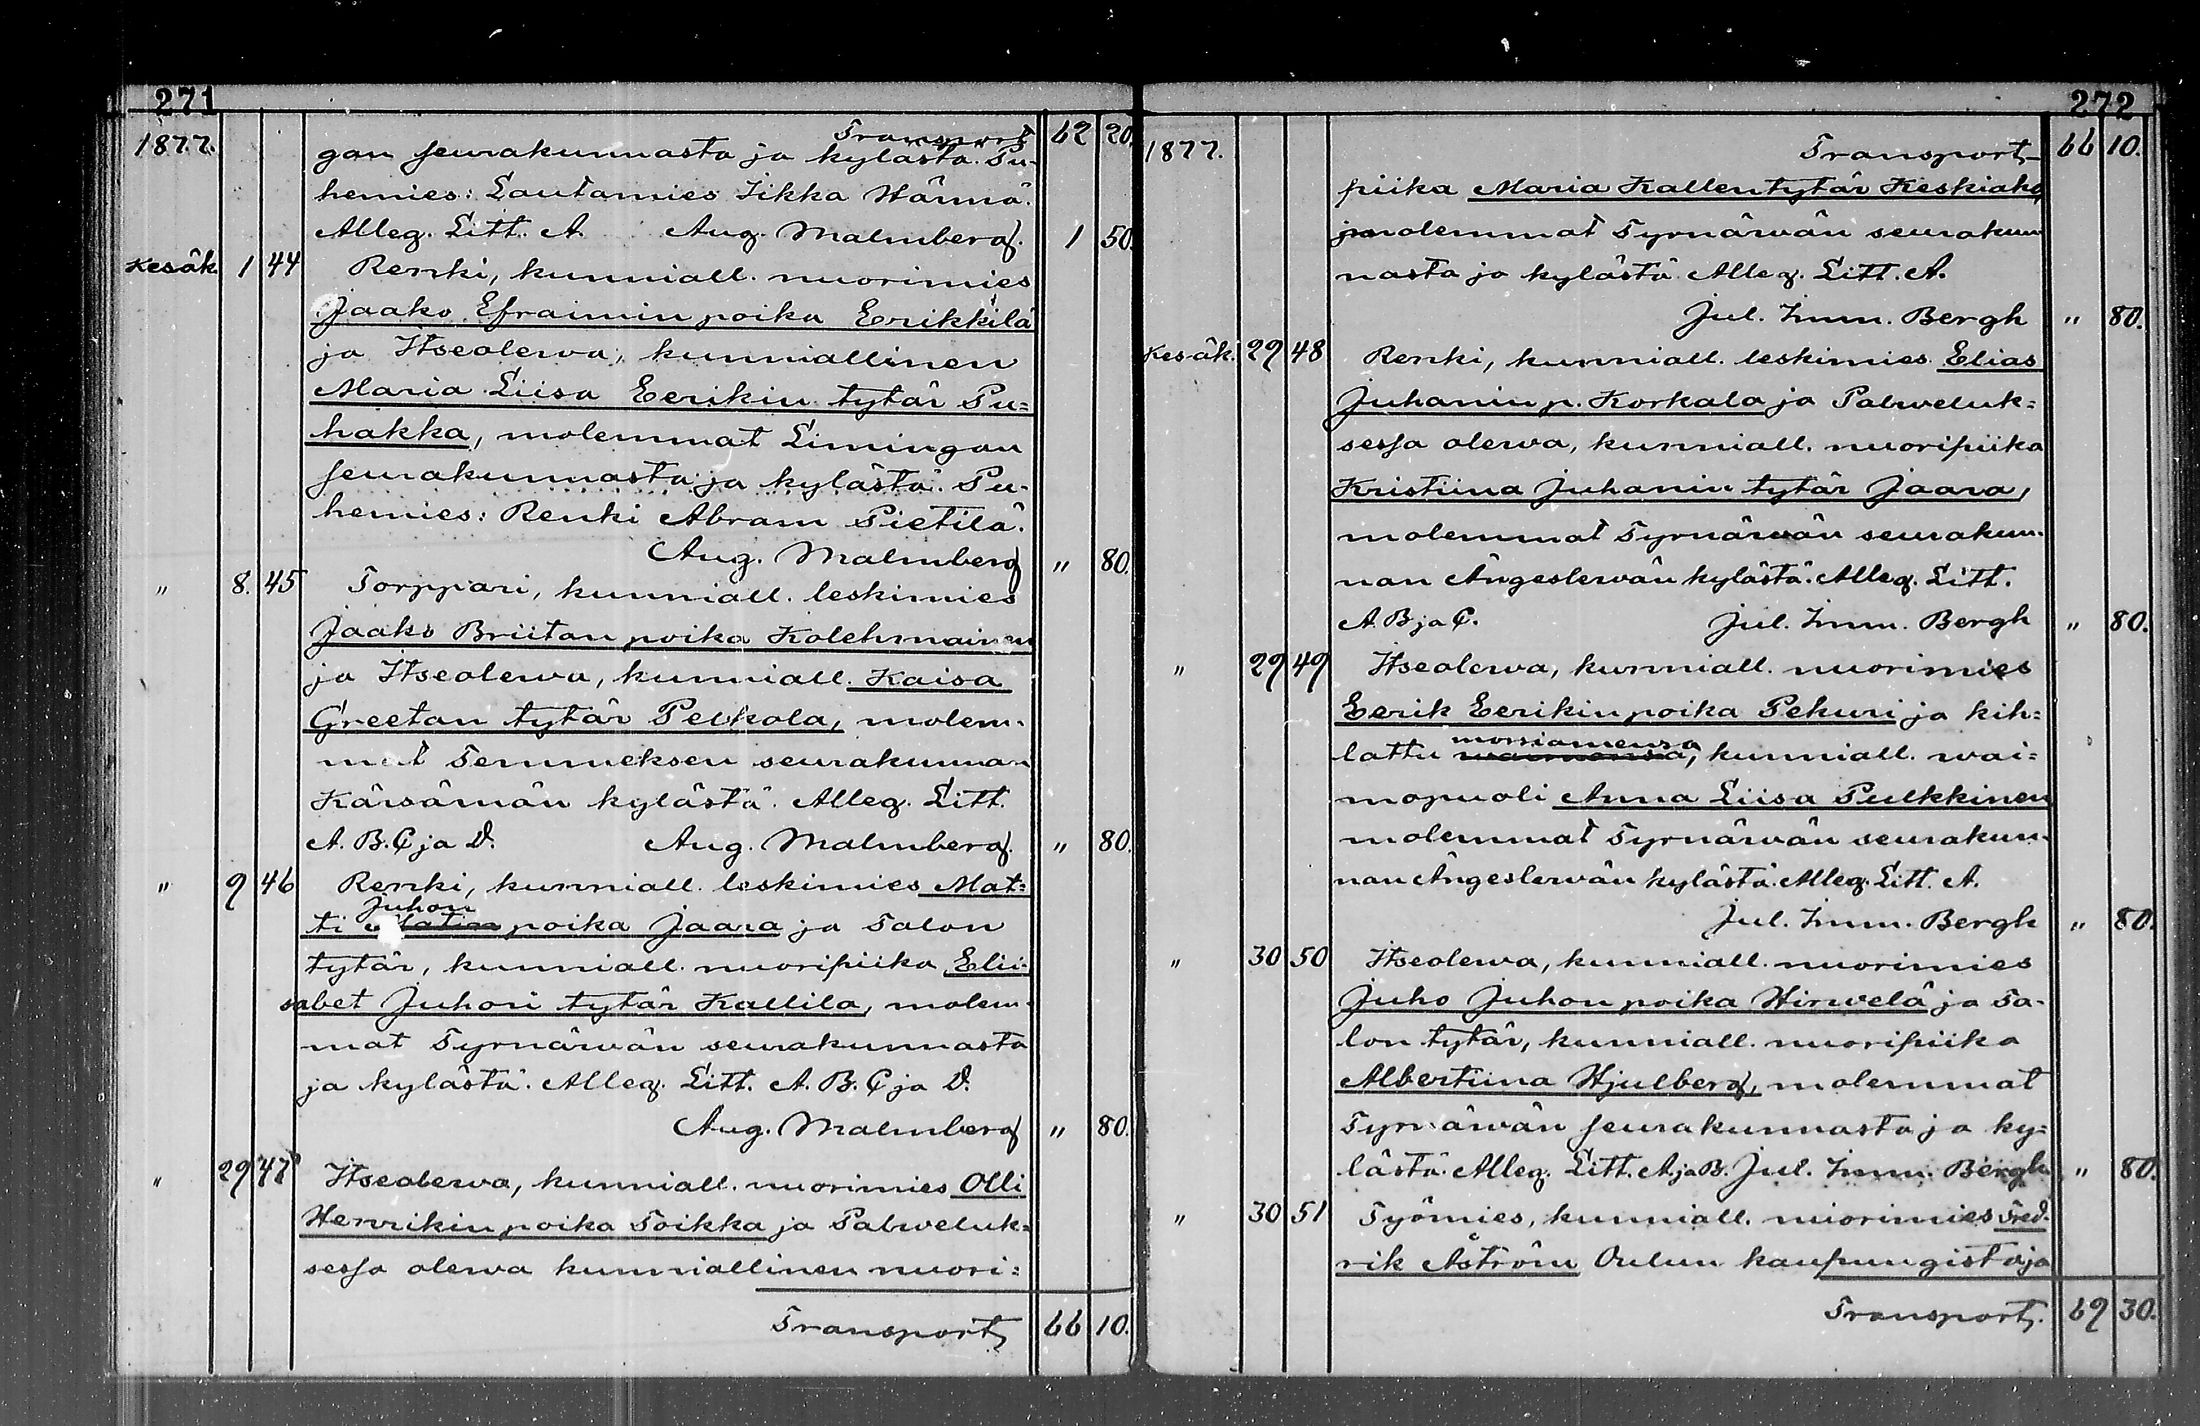 271
Transport 62 20.
1877. gan seurakunnasta ja kylästä. Pu-
hemies: Lautamies Iikka Hännä.
Alleg. Litt. A. Aug. Malmberg. 1 50.
Kesäk. 1 44 Renki, kunniall. nuorimies
Jaako Efraimin poika Erikkilä
ja Itseolewa, kunniallinen
Maria Liisa Eerikin tytär Pu=
hakka, molemmat Limingan
seurakunnasta ja kylästä. Pu-
hemies: Renki Abram Pietilä.
Aug. Malmberg " 80.
" 8. 45 Torppari, kunniall. leskimies
Jaako Briitan poika Kolehmainen
ja Itseolewa, kunniall. Kaisa
Greetan tytär Pelkola, molem-
mat Temmeksen seurakunnan
Kärsämän kylästä. Alleg. Litt.
A. B. C ja D. Aug. Malmberg. " 80.
" 9 46 Renki, kunniall. leskimies Mat=
Juhon
ti Matin poika Jaara ja Talon
tytär, kunniall. nuoripiika Elii-
sabet Juhon tytär Kallila, molem-
mat Tyrnäwän seurakunnasta
ja kylästä. Alleg. Litt. A. B. C ja D.
Aug. Malmberg " 80.
" 29 47 Itseolewa, kunniall. nuorimies Olli
Henrikin poika Toikka ja Palweluk=
sessa olewa kunniallinen nuori=
Transport 66 10.
272
1877. Transport 66 10.
piika Maria Kallen tytär Keskiaho,
molemmat Tyrnäwän seurakun
nasta ja kylästä Alleg. Litt. A.
Jul. Imm. Bergh " 80.
Kesäk. 29 48 Renki, kunniall. leskimies Elias
Juhanin p. Korkala ja Palweluk=
sessa olewa, kunniall. nuoripiika
Kristiina Juhanin tytär Jaara,
molemmat Tyrnäwän seurakun-
nan Ängeslewän kylästä. Alleg. Litt.
A. B ja C. Jul. Imm. Bergh " 80.
" 29 49 Itseolewa, kunniall. nuorimies
Eerik Eerikin poika Pekuri ja kih=
morsiamensa
lattu waimonsa, kunniall. wai=
mopuoli Anna Liisa Pulkkinen
molemmat Tyrnäwän seurakun-
nan Ängeslewän kylästä. Alleg. Litt. A.
Jul. Imm. Bergh " 80.
" 30 50 Itseolewa, kunniall. nuorimies
Juho Juhon poika Hirwelä ja Ta-
lon tytär, kunniall. nuoripiika
Albertiina Hjulberg, molemmat
Tyrnäwän seurakunnasta ja ky=
lästä. Alleg. Litt. A ja B. Jul. Imm. Bergh " 80.
" 30 51 Työmies, kunniall. nuorimies Fred-
rik Åström Oulun kaupungista ja
Transport. 69 30.